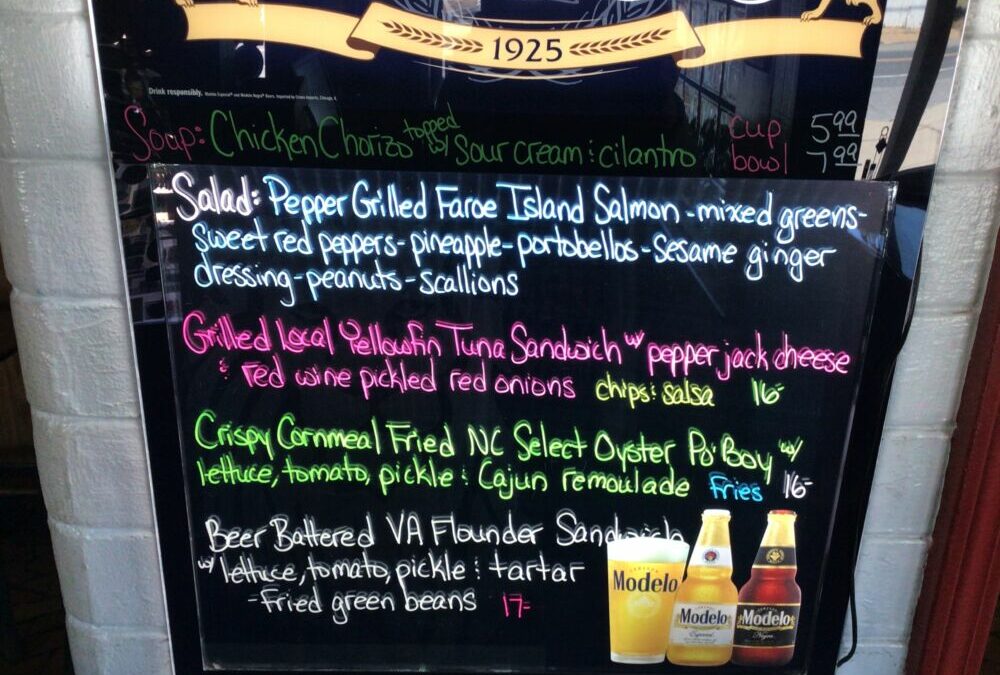 1925
Drink responsibly.
Soup: Chicken Chorizo topped w/ Sour cream & cilantro cup 5.99
bowl 7.99
Salad: Pepper Grilled Faroe Island Salmon - mixed greens -
sweet red peppers - pineapple - portobellos - sesame ginger
dressing - peanuts - scallions
Grilled Local Yellowfin Tuna Sandwich w/ pepper jack cheese
& red wine pickled red onions chips & salsa 16-
Crispy Cornmeal Fried NC Select Oyster Po' Boy w/
lettuce, tomato, pickle & Cajun remoulade fries 16-
Beer Battered VA Flounder Sandwich
w/ lettuce, tomato, pickle & tartar
- fried green beans 17-
Modelo
Modelo
Especial
Modelo
Negra